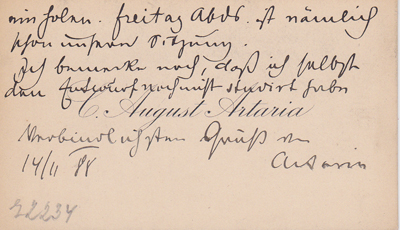 einholen. Freitag Abds. ist nämlich
schon unsere Sitzung.
Ich bemerke noch, daß ich selbst
den Entwurf noch nicht studirt habe
C. August Artaria
Verbindlichsten Gruß von
14/11 88 Artaria
22234